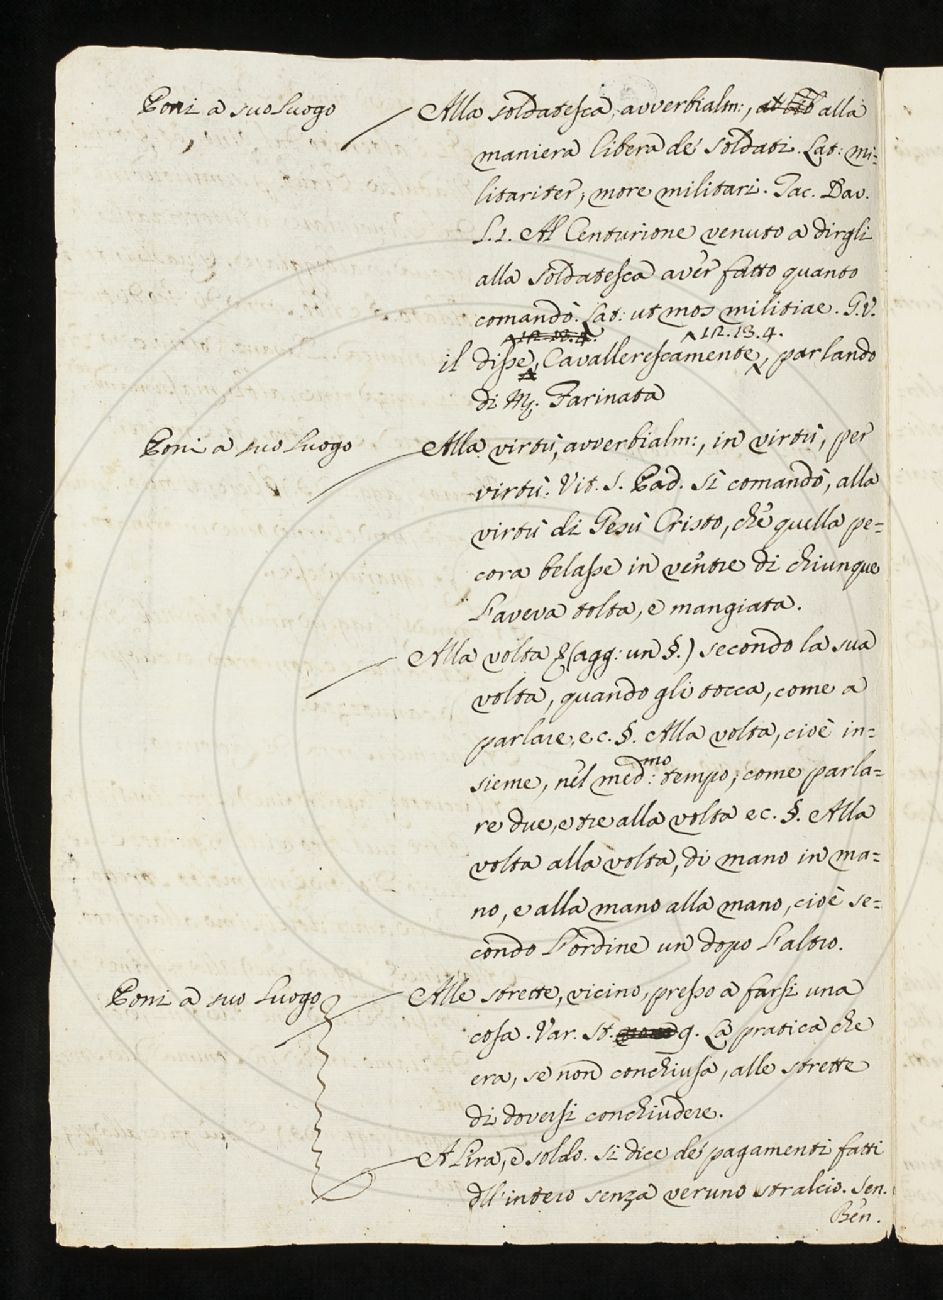 Poni a suo luogo
Alla soldatesca, avverbialm:, alla
maniera libera de' soldati. Lat: mi-
litariter, more militari. Tac. Dav.
Al Centurione venuto a dirgli
alla soldatesca aver fatto quanto
comandò. Lat: ut mos militiae. G.V.
12.13.4. 12.13.4.
il disse, Cavallerescamente, parlando
di M. Farinata
Poni a suo luogo
Alla virtù, avverbialm:, in virtù, per
virtù. Vit. S. Pad. si comandò, alla
virtù di Gesù Cristo, che quella pe-
cora belasse in ventre di chiunque
l'aveva tolta, e mangiata.
Alla volta (agg: un §.) secondo la sua
volta, quando gli tocca, come a
parlare, ec. §. Alla volta, cioè in-
sieme, nel med:mo tempo, come parla-
re due, e tre alla volta ec. §. Alla
volta alla volta, di mano in ma-
no, e alla mano alla mano, cioè se-
condo l'ordine un dopo l'altro.
Poni a suo luogo
Alle strette, vicino, presso a farsi una
cosa. Var. St. 9. La pratica che
era, se non conchiusa, alle strette
di doversi conchiudere.
A lira, e soldo. si dice de' pagamenti fatti
all'intero senza veruno stralcio. Sen.
Ben.